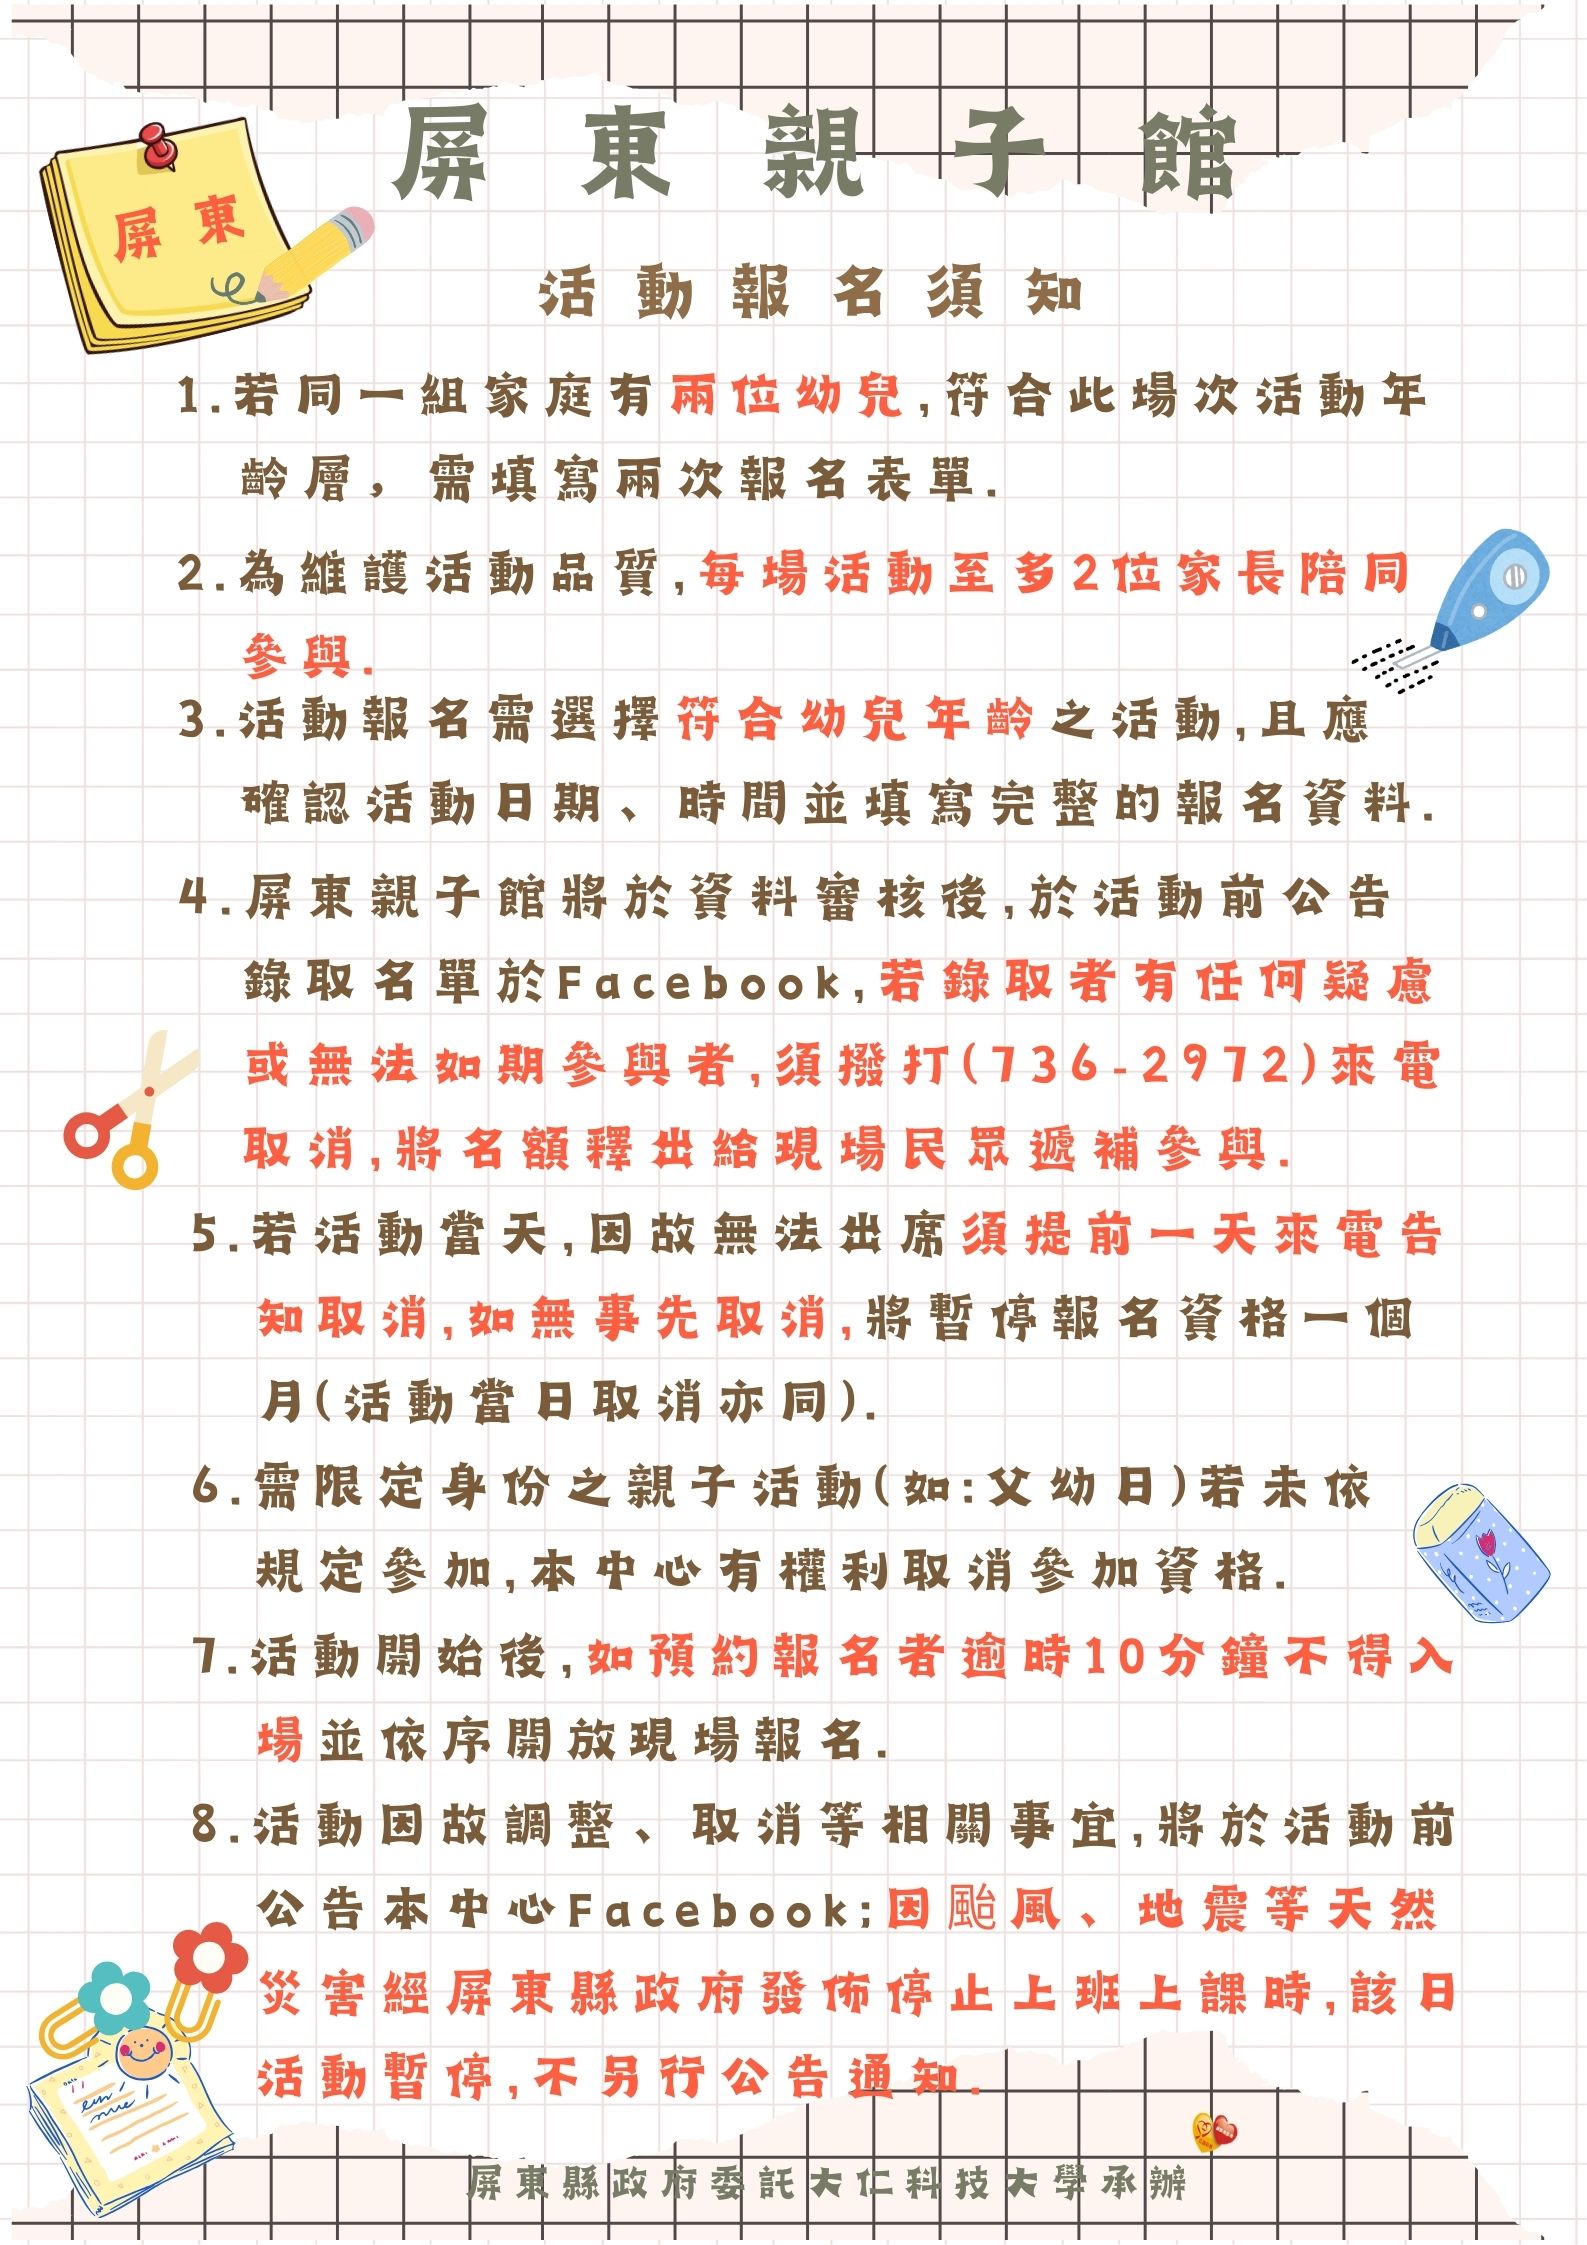 屏東親子館
屏東
活動報名須知
1.若同一組家庭有兩位幼兒,符合此場次活動年
齡層，需填寫兩次報名表單.
2.為維護活動品質,每場活動至多2位家長陪同
參與.
3.活動報名需選擇符合幼兒年齡之活動,且應
確認活動日期、時間並填寫完整的報名資料.
4.屏東親子館將於資料審核後,於活動前公告
錄取名單於Facebook,若錄取者有任何疑慮
或無法如期參與者,須撥打(736-2972)來電
取消,將名額釋出給現場民眾遞補參與.
5.若活動當天,因故無法出席須提前一天來電告
知取消,如無事先取消,將暫停報名資格一個
月(活動當日取消亦同).
6.需限定身份之親子活動(如:父幼日)若未依
規定參加,本中心有權利取消參加資格.
7.活動開始後,如預約報名者逾時10分鐘不得入
場並依序開放現場報名.
8.活動因故調整、取消等相關事宜,將於活動前
公告本中心Facebook;因颱風、地震等天然
災害經屏東縣政府發佈停止上班上課時,該日
活動暫停,不另行公告通知.
屏東縣政府委託大仁科技大學承辦